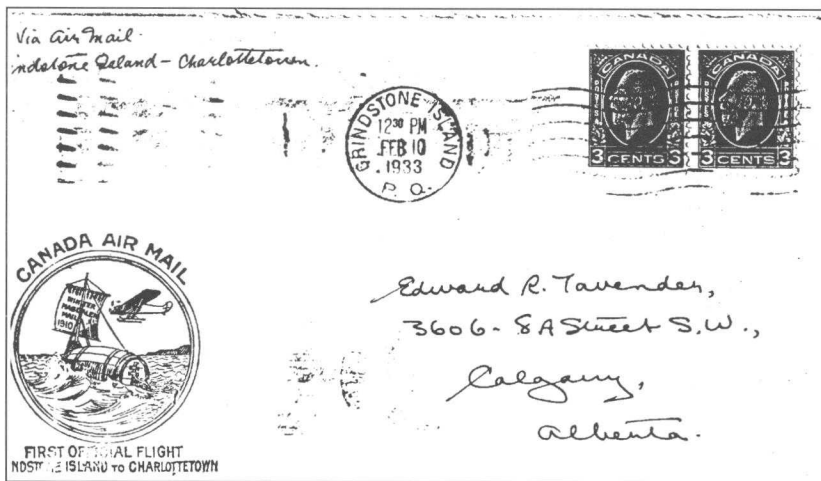 Via Air Mail.
ndstone Island - Charlottetown.
GRINDSTONE ISLAND
12 30 PM
FEB 10
1933
P. Q.
CANADA
3 CENTS 3
CANADA
3 CENTS 3
CANADA AIR MAIL
WINTER
MAGDALEN
MAIL
1910
FIRST OFFICIAL FLIGHT
NDSTONE ISLAND TO CHARLOTTETOWN
Edward R. Tavender,
3606 - 8A Street S.W.,
Calgary,
Alberta.